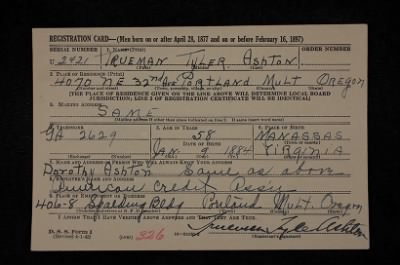 REGISTRATION CARD—(Men born on or after April 28, 1877 and on or before February 16, 1897)
SERIAL NUMBER 1. NAME (Print) ORDER NUMBER
U 2421 TRUEMAN TYLER ASHTON
2. PLACE OF RESIDENCE (Print)
4070 NE 32nd AVE PORTLAND MULT OREGON
[THE PLACE OF RESIDENCE GIVEN ON THE LINE ABOVE WILL DETERMINE LOCAL BOARD
JURISDICTION; LINE 2 OF REGISTRATION CERTIFICATE WILL BE IDENTICAL]
3. MAILING ADDRESS
SAME
4. TELEPHONE 5. AGE IN YEARS 6. PLACE OF BIRTH
GA 2629 58 MANASSAS
DATE OF BIRTH
JAN 9 1884 VIRGINIA
7. NAME AND ADDRESS OF PERSON WHO WILL ALWAYS KNOW YOUR ADDRESS
Dorothy Ashton Same as above
8. EMPLOYER'S NAME AND ADDRESS
American Credit Ass'n
9. PLACE OF EMPLOYMENT OR BUSINESS
406-8 Spalding Bldg Portland Mult. Oregon
I AFFIRM THAT I HAVE VERIFIED ABOVE ANSWERS AND THAT THEY ARE TRUE.
D. S. S. Form 1
326 Trueman Tyler Ashton